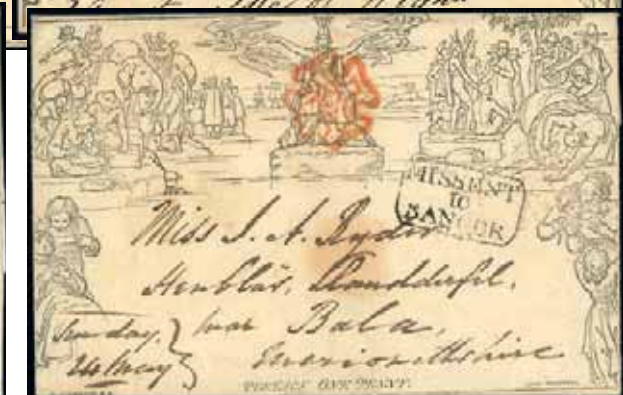 MISSENT
TO
BANGOR
Miss J. A. Ryder
Henblâs, Llandderfel,
near Bala,
Merionethshire
Sunday,
24 May
POSTAGE ONE PENNY.